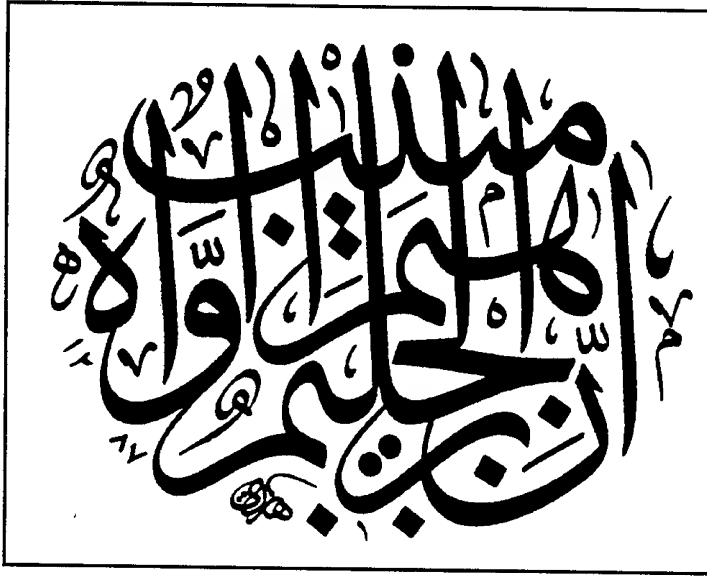 إِنَّ إِبْرَاهِيمَ لَحَلِيمٌ أَوَّاهٌ مُنِيبٌ